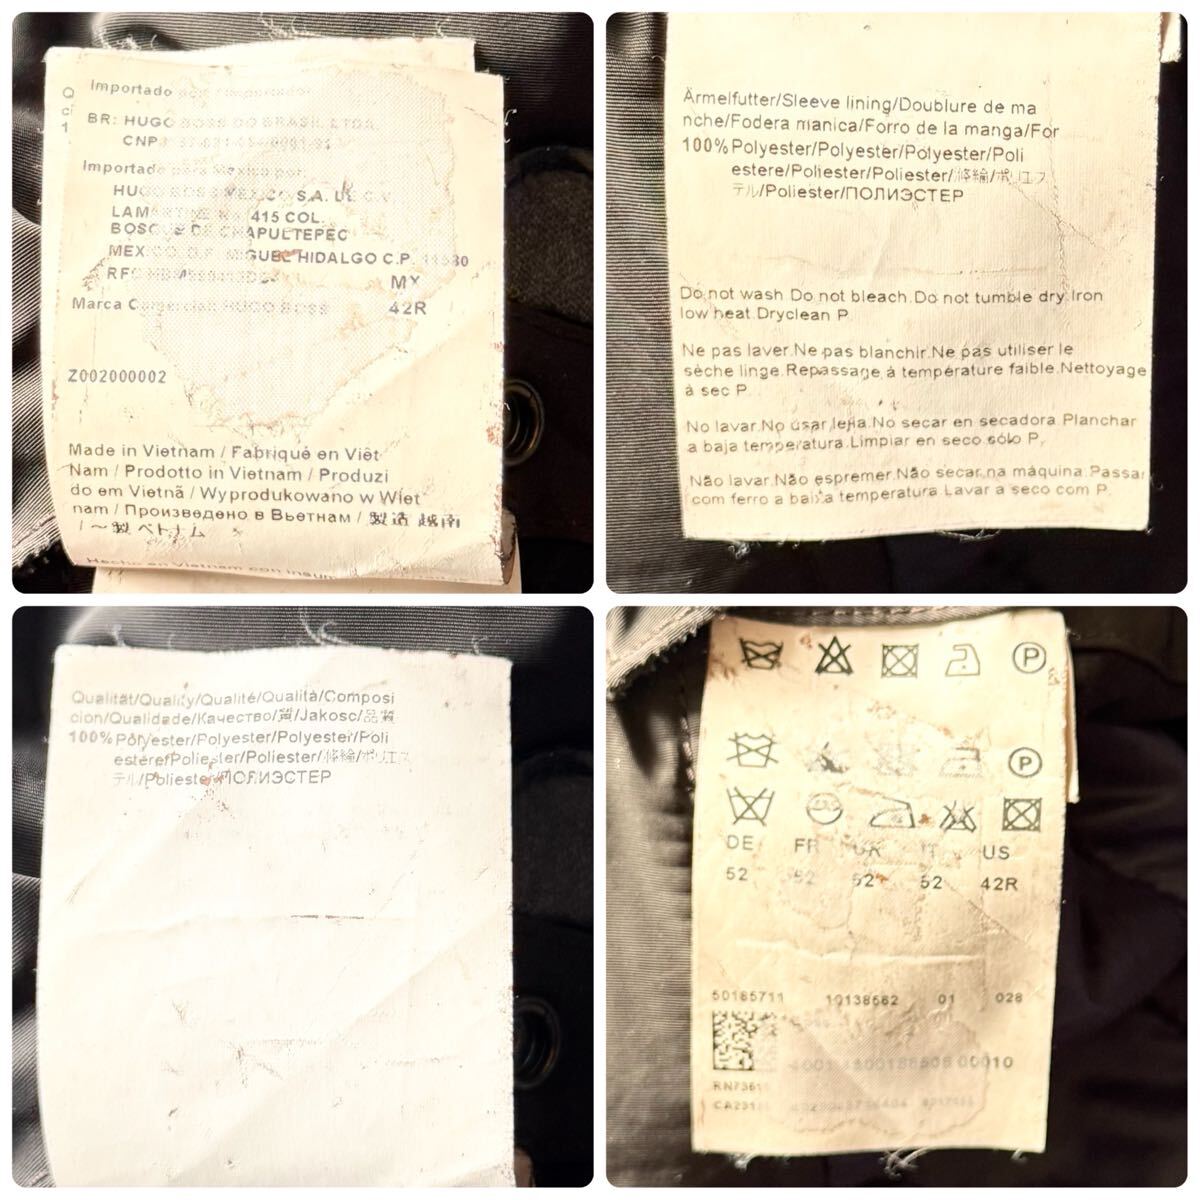 Importado
BR: HUGO BOSS DO BRASIL LTDA
CNP
Importado para Mexico por:
HUGO BOSS MEXICO S.A. DE C.V.
415 COL.
BOSQUE DE CHAPULTEPEC
MEXICO, D.F. MIGUEL HIDALGO C.P.
MX
Marca Comercial: HUGO BOSS 42R
Z002000002
Made in Vietnam / Fabriqué en Viêt
Nam / Prodotto in Vietnam / Produzi
do em Vietnã / Wyprodukowano w Wiet
nam / Произведено в Вьетнам / 製造 越南
/ ～製 ベトナム
Hecho en Vietnam con
Ärmelfutter/Sleeve lining/Doublure de ma
nche/Fodera manica/Forro de la manga/For
100% Polyester/Polyester/Polyester/Poli
estere/Poliester/Poliester/滌綸/ポリエス
テル/Poliester/ПОЛИЭСТЕР
Do not wash.Do not bleach.Do not tumble dry.Iron
low heat.Dryclean P.
Ne pas laver.Ne pas blanchir.Ne pas utiliser le
sèche linge.Repassage à température faible.Nettoyage
à sec P.
No lavar.No usar lejía.No secar en secadora.Planchar
a baja temperatura.Limpiar en seco sólo P.
Não lavar.Não espremer.Não secar na máquina.Passar
com ferro a baixa temperatura.Lavar a seco com P.
Qualität/Quality/Qualité/Qualità/Composi
cion/Qualidade/Качество/質/Jakosc/品質
100% Polyester/Polyester/Polyester/Poli
estere/Poliester/Poliester/滌綸/ポリエス
テル/Poliester/ПОЛИЭСТЕР
P
P
DE FR UK IT US
52 52 52 52 42R
50185711 10138562 01 028
00010